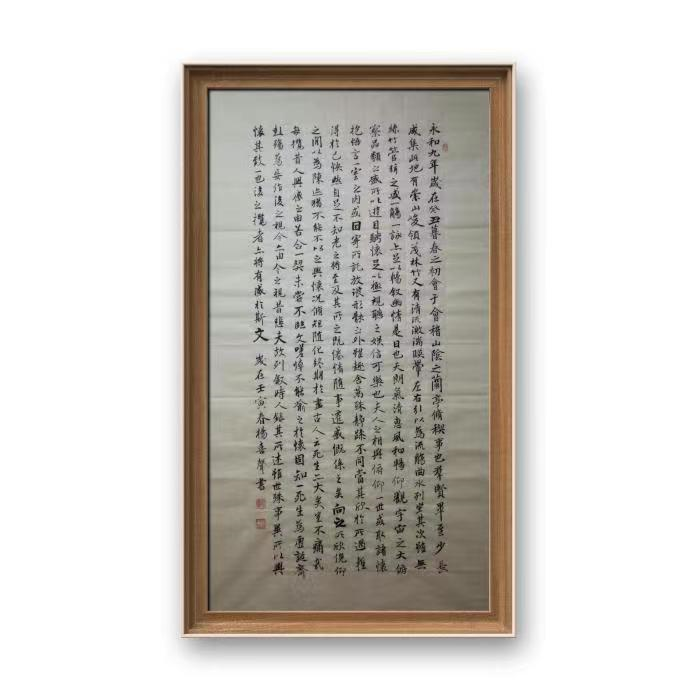 永和九年歲在癸丑暮春之初會于會稽山陰之蘭亭脩稧事也羣賢畢至少長
咸集此地有崇山峻領茂林竹又有清流激湍暎帶左右引以為流觴曲水列坐其次雖無
絲竹管絃之盛一觴一詠亦足以暢叙幽情是日也天朗氣清惠風和暢仰觀宇宙之大俯
察品類之盛所以遊目騁懷足以極視聽之娛信可樂也夫人之相與俯仰一世或取諸懷
抱悟言一室之內或因寄所託放浪形骸之外雖趣舍萬殊靜躁不同當其欣於所遇暫
得於己快然自足不知老之將至及其所之既倦情隨事遷感慨係之矣向之所欣俛仰
之間以為陳迹猶不能不以之興懷況脩短隨化終期於盡古人云死生亦大矣豈不痛哉
每攬昔人興感之由若合一契未嘗不臨文嗟悼不能喻之於懷固知一死生為虛誕齊
彭殤為妄作後之視今亦由今之視昔悲夫故列叙時人錄其所述雖世殊事異所以興
懷其致一也後之攬者亦將有感於斯文 歲在壬寅春楊喜聲書